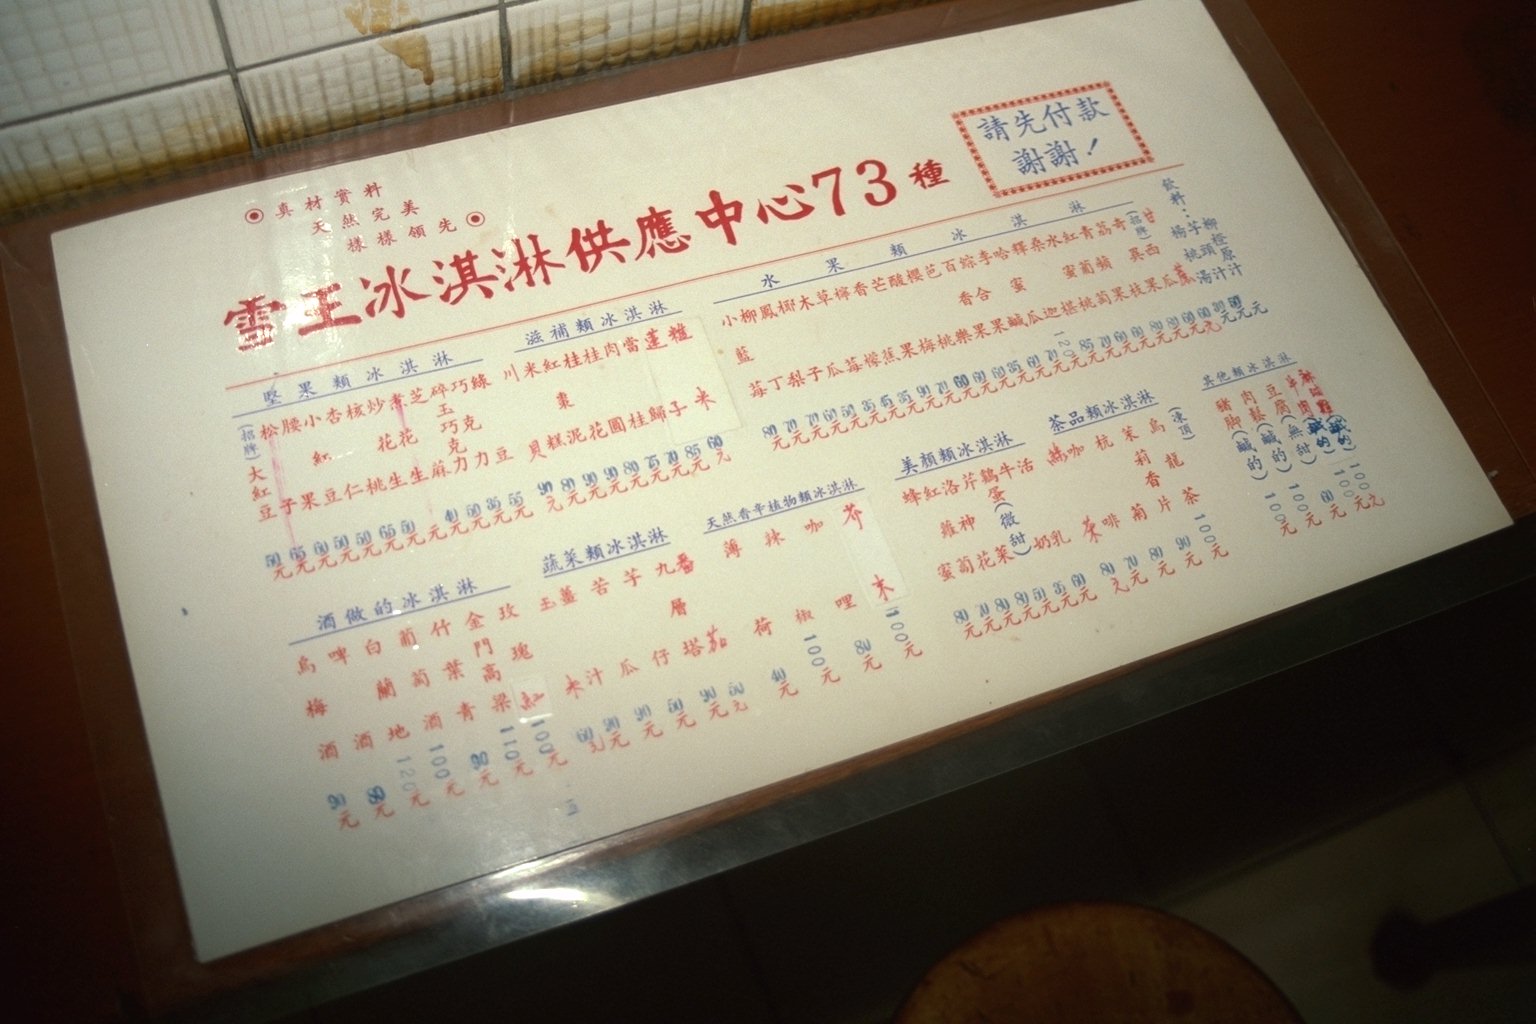 真材實料
天然完美
樣樣領先
請先付款
謝謝！
雪王冰淇淋供應中心73種
堅果類冰淇淋
(招牌)大紅豆 50元
松子 65元
腰果 60元
小紅豆 50元
杏仁 50元
核桃 65元
炒花生 50元
煮花生
芝麻 40元
碎玉巧克力 50元
巧克力 35元
綠豆 55元
滋補類冰淇淋
川貝 90元
米糕 80元
紅棗泥 90元
桂花 90元
桂圓 80元
肉桂 75元
當歸 70元
蓮子 85元
糙米 60元
水果類冰淇淋
小藍莓 80元
柳丁 70元
鳳梨 70元
椰子 60元
木瓜 50元
草莓
檸檬
香蕉
芒果 90元
酸梅 70元
櫻桃
芭樂 60元
百香果
綜合果
李鹹
哈蜜瓜
釋迦
桑椹 120
水蜜桃 85元
紅葡萄
青蘋果
荔枝
奇異果
(招牌)西瓜 60元
甘蔗
飲料：
楊桃湯
芋頭汁 30元
柳橙原汁 60元
酒做的冰淇淋
烏梅酒 90元
啤酒
白蘭地 120元
葡萄酒 100元
什葉青 90元
金門高梁 110元
玫瑰紅 100元
蔬菜類冰淇淋
玉米 60元
薑汁 90元
苦瓜 90元
芋仔 50元
九層塔 90元
番茄 50元
天然香辛植物類冰淇淋
薄荷 40元
辣椒 100元
咖哩 80元
芥末 100元
美顏類冰淇淋
蜂蜜 80元
紅蘿蔔 70元
洛神花 80元
芹菜 80元
鷄蛋(微甜) 50元
牛奶 35元
活乳 60元
茶品類冰淇淋
綠茶 80元
咖啡 70元
杭菊 80元
茉莉香片 90元
(凍頂)烏龍茶 100元
其他類冰淇淋
豬腳(鹹的) 100元
肉鬆(鹹的) 100元
豆腐(無甜) 60元
牛肉(鹹的) 100元
麻油雞(鹹的) 100元